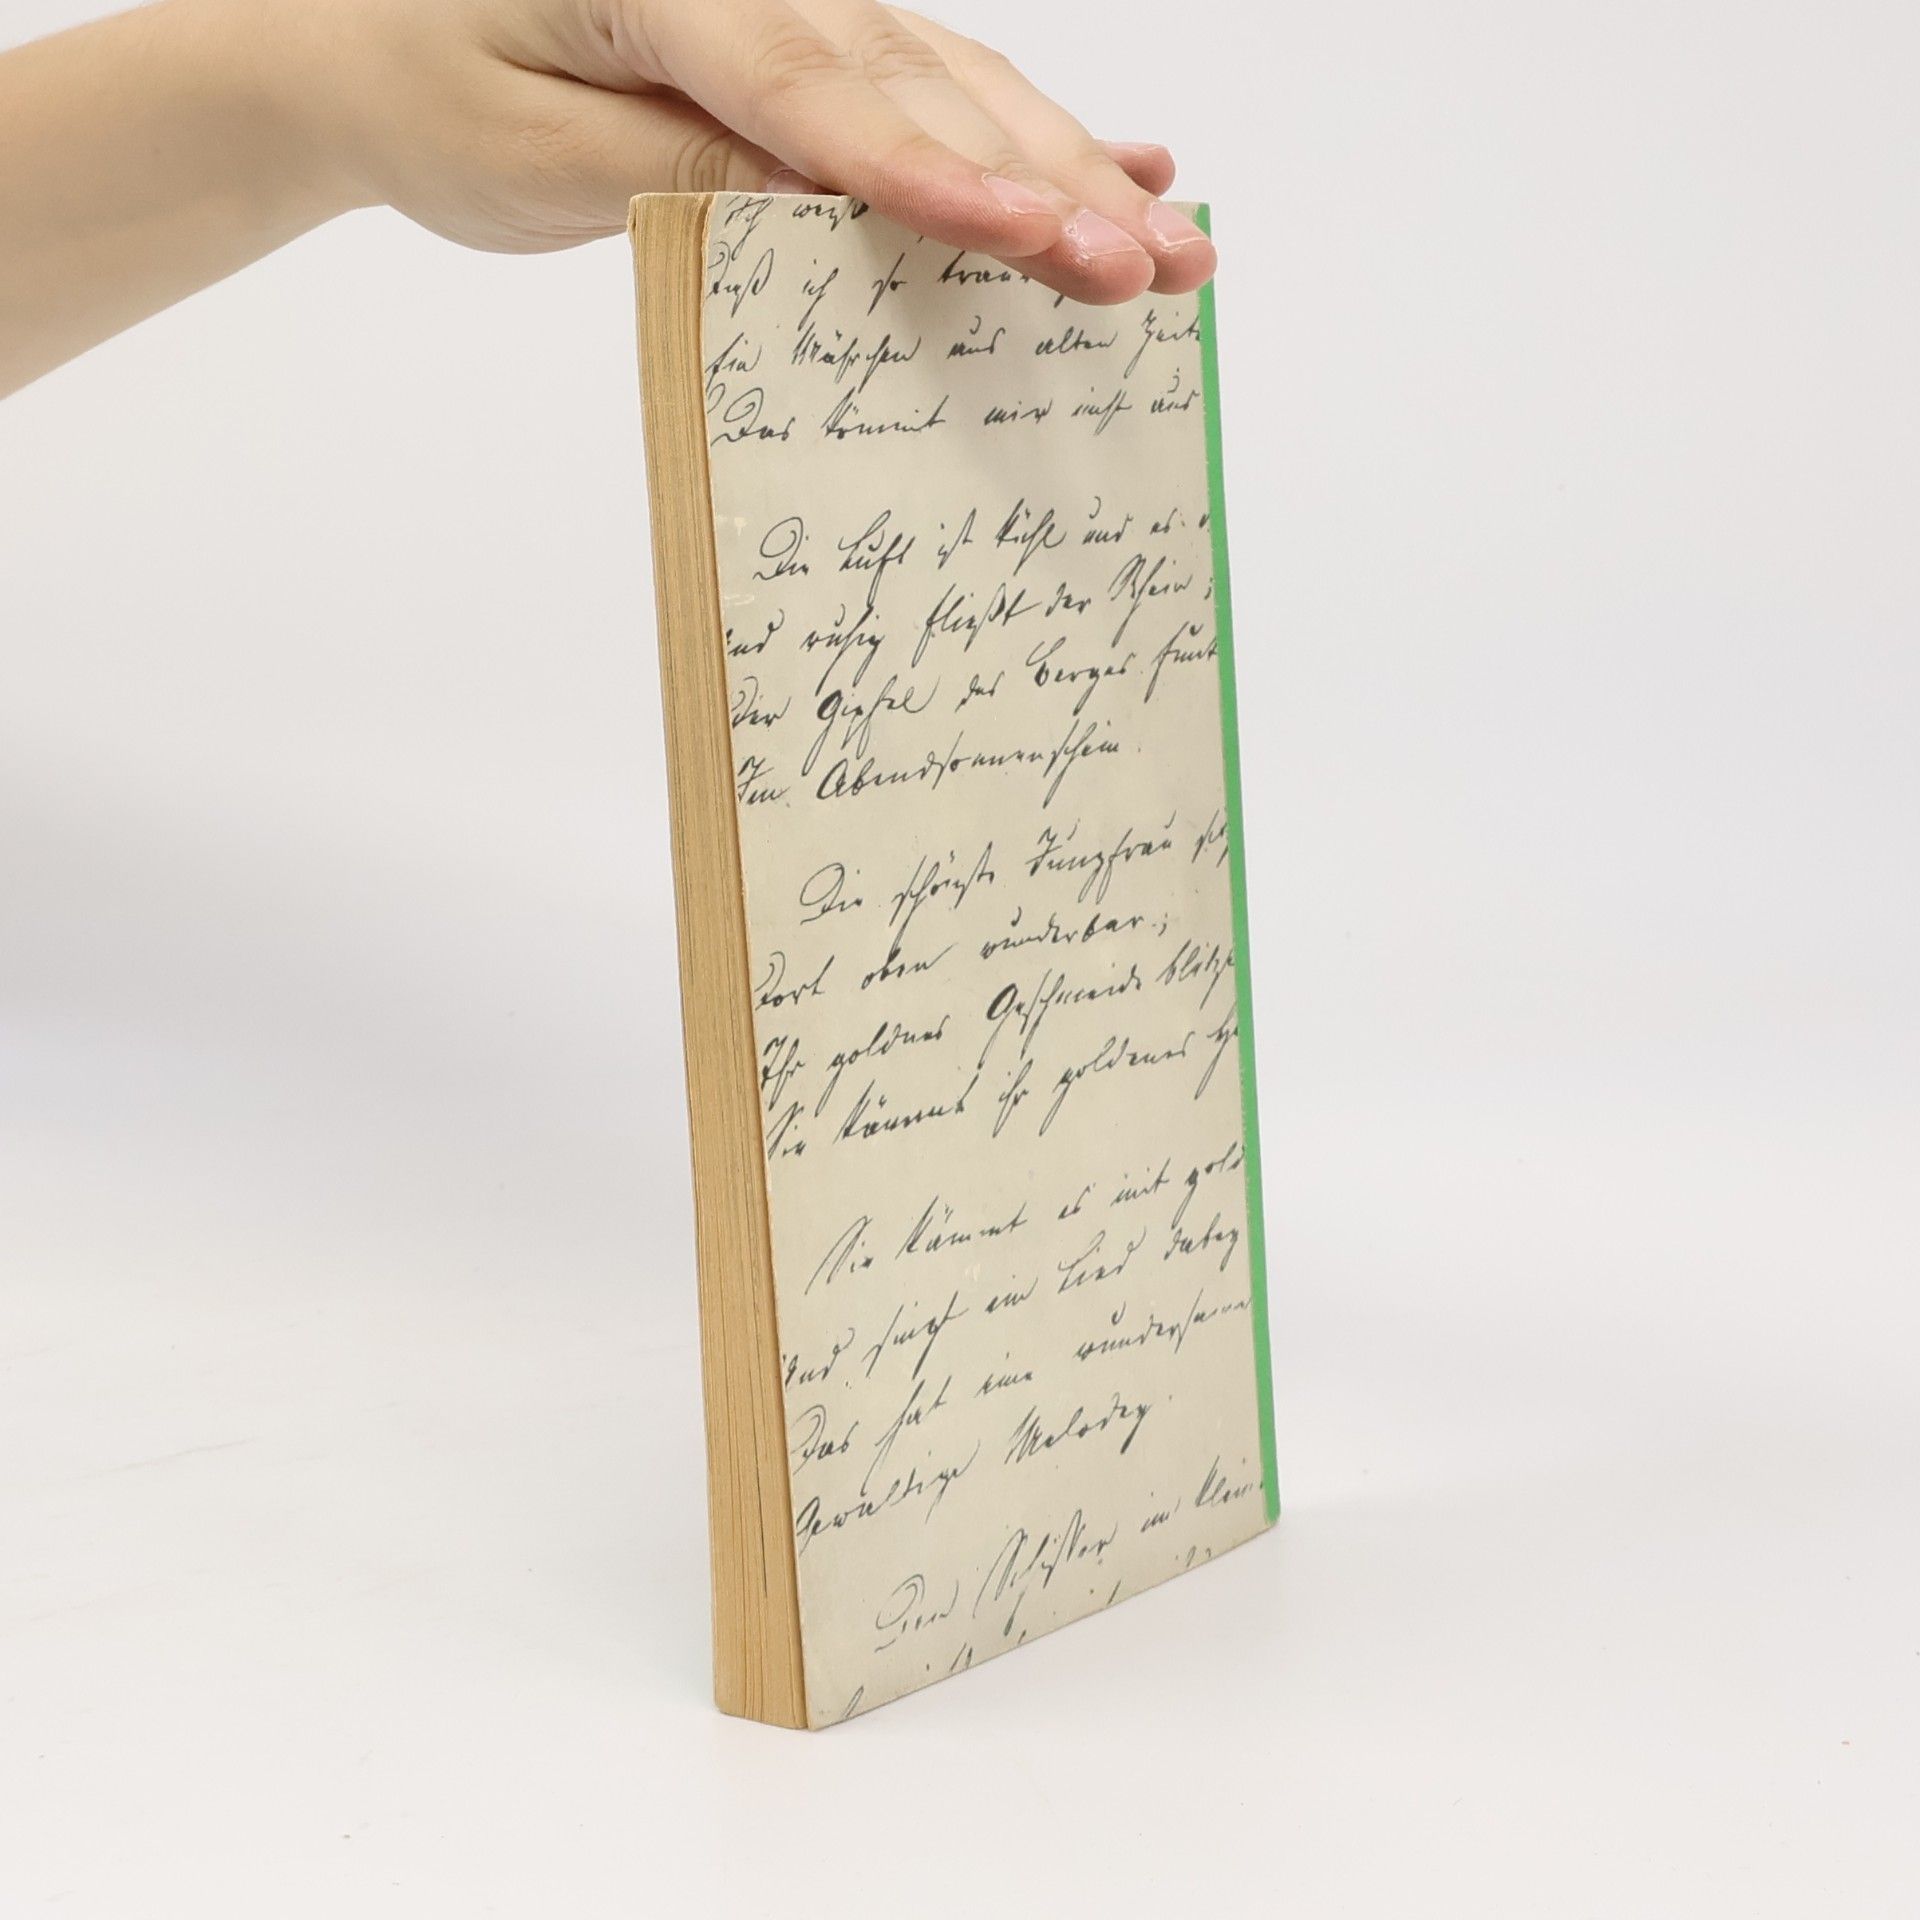 Ich weiß
Daß ich so traur
Ein Mährchen aus alten Zeite
Das kömmt mir nicht aus
Die Luft ist kühl und es d
Und ruhig fließt der Rhein;
Der Gipfel des Berges funk
Im Abendsonnenschein.
Die schönste Jungfrau sitz
Dort oben wunderbar;
Ihr goldnes Geschmeide blitze
Sie kämmt ihr goldenes Ha
Sie kämmt es mit gold
Und singt ein Lied dabey
Das hat eine wundersame
Gewaltige Melodey.
Den Schiffer im klein